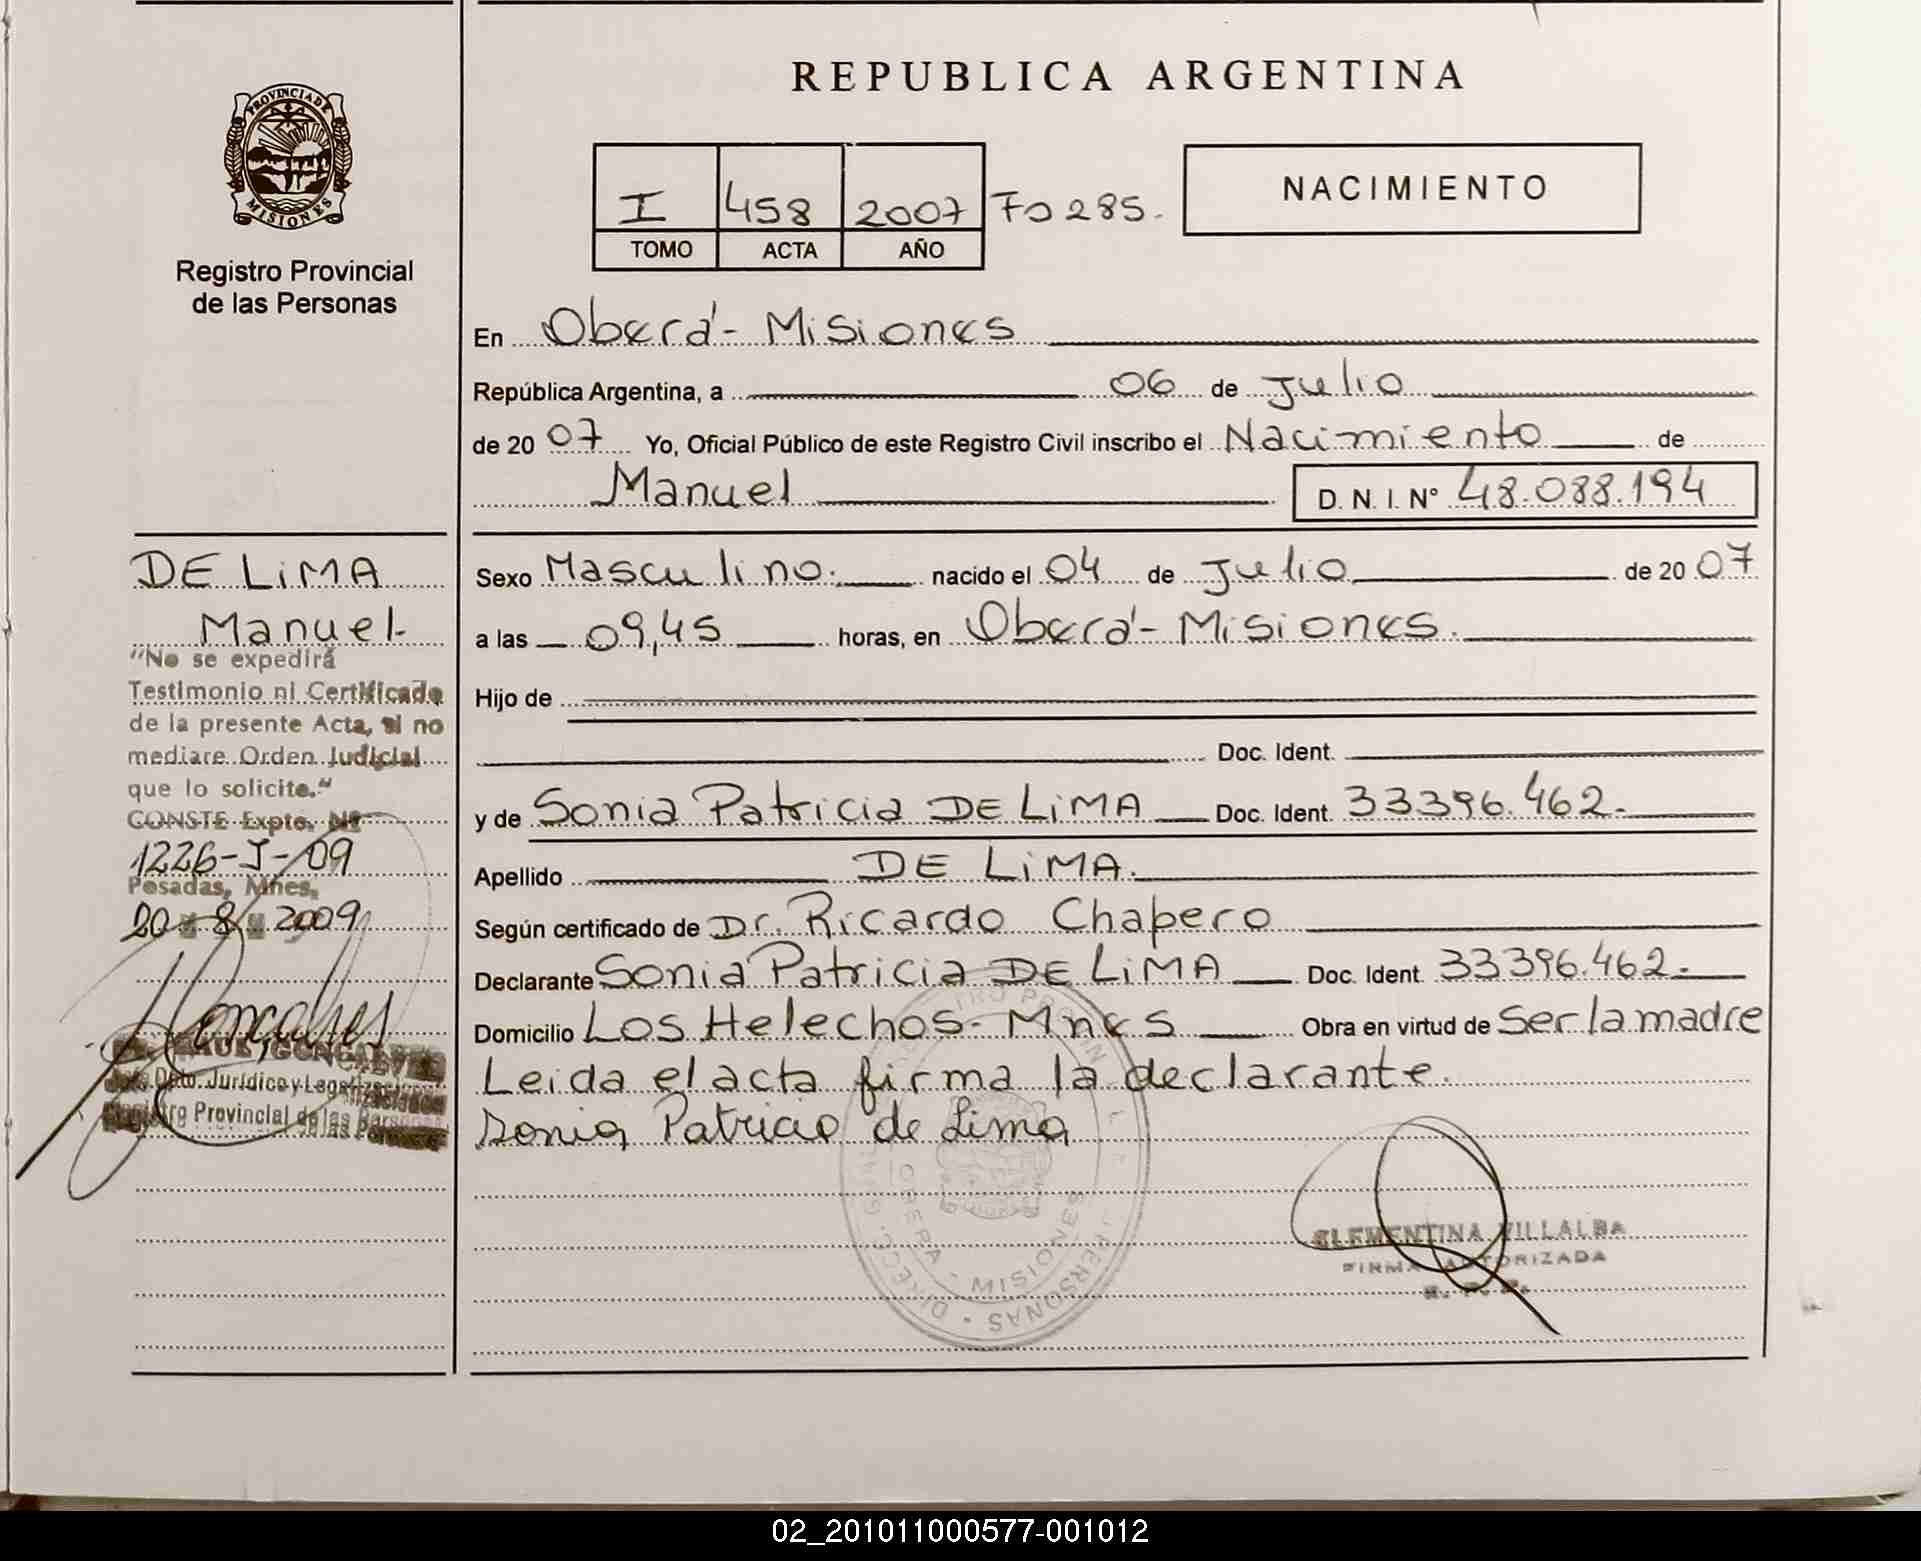 REPUBLICA ARGENTINA
PROVINCIA DE
MISIONES
Registro Provincial
de las Personas
I 458 2007 Fo 285.
TOMO ACTA AÑO
NACIMIENTO
En Oberá - Misiones
República Argentina, a 06 de Julio
de 2007 Yo, Oficial Público de este Registro Civil inscribo el Nacimiento de
Manuel D. N. I. N° 48.088.194
DE LiMA
Manuel-
"No se expedirá
Testimonio ni Certificado
de la presente Acta, si no
mediare Orden Judicial
que lo solicite."
CONSTE Expte. Nº
1226-J-09
Posadas, Mnes,
20 8 2009
Jefe Dpto. Jurídico y Legalizaciones
Registro Provincial de las Personas
Sexo Masculino. nacido el 04 de Julio de 2007
a las 09,45 horas, en Oberá - Misiones.
Hijo de
Doc. Ident.
y de Sonia Patricia DE LiMA Doc. Ident. 33396.462.-
Apellido DE LiMA.
Según certificado de Dr. Ricardo Chapero
Declarante Sonia Patricia DE LiMA Doc. Ident. 33396.462.-
Domicilio Los Helechos - Mnes Obra en virtud de Ser la madre
Leida el acta firma la declarante.
Sonia Patricia de Lima
OBERA - MISIONES
CLEMENTINA VILLALBA
FIRMA AUTORIZADA
02_201011000577-001012